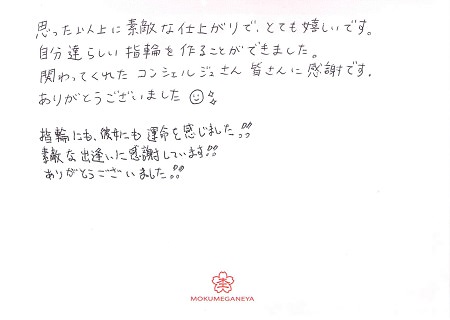 思った以上に素敵な仕上がりで、とても嬉しいです。
自分達らしい指輪を作ることができました。
関わってくれた コンシェルジュさん 皆さんに感謝です。
ありがとうございました
指輪にも、彼女にも運命を感じました!!
素敵な出逢いに感謝しています!!
ありがとうございました!!
MOKUMEGANEYA